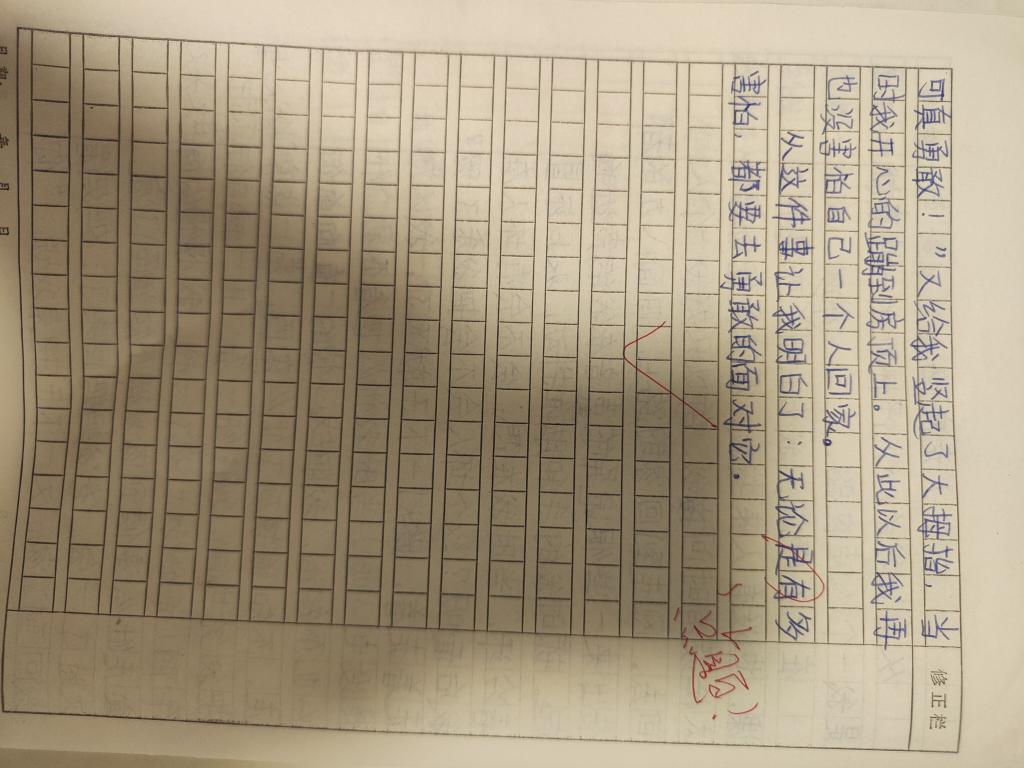 可真勇敢！”又给我竖起了大拇指，当
时我开心的蹦到房顶上。从此以后我再
也没害怕自己一个人回家。
从这件事让我明白了：无论是有多
害怕，都要去勇敢的面对它。
修正栏
点题
年 月 日